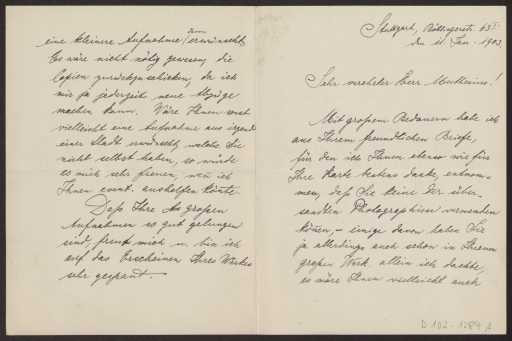 Stuttgart, 63
den 11. Jan. 1903
Sehr verehrter Herr Muthesius!
Mit großem Bedauern habe ich
aus Ihrem freundlichen Briefe,
für den ich Ihnen ebenso wie für
Ihre Karte bestens danke, entnom-
men, daß Sie keine der über-
sandten Photographien verwenden
können, – einige davon haben Sie
ja allerdings auch schon in Ihrem
großen Werk. allein ich dachte,
es wäre Ihnen vielleicht auch
eine kleinere Aufnahme erwünscht.
Es wäre nicht nötig gewesen, die
Copien zurückzuschicken, da ich
mir ja jederzeit neue Abzüge
machen kann. Wäre Ihnen sonst
vielleicht eine Aufnahme aus irgend
einer Stadt erwünscht, welche Sie
nicht selbst haben, so würde
es mich sehr freuen, wenn ich
Ihnen event. aushelfen könnte.
Daß Ihre großen
Aufnahmen so gut gelungen
sind, freut mich u. bin ich
auf das Erscheinen Ihres Werkes
sehr gespannt. –
D 102 - 1289 a